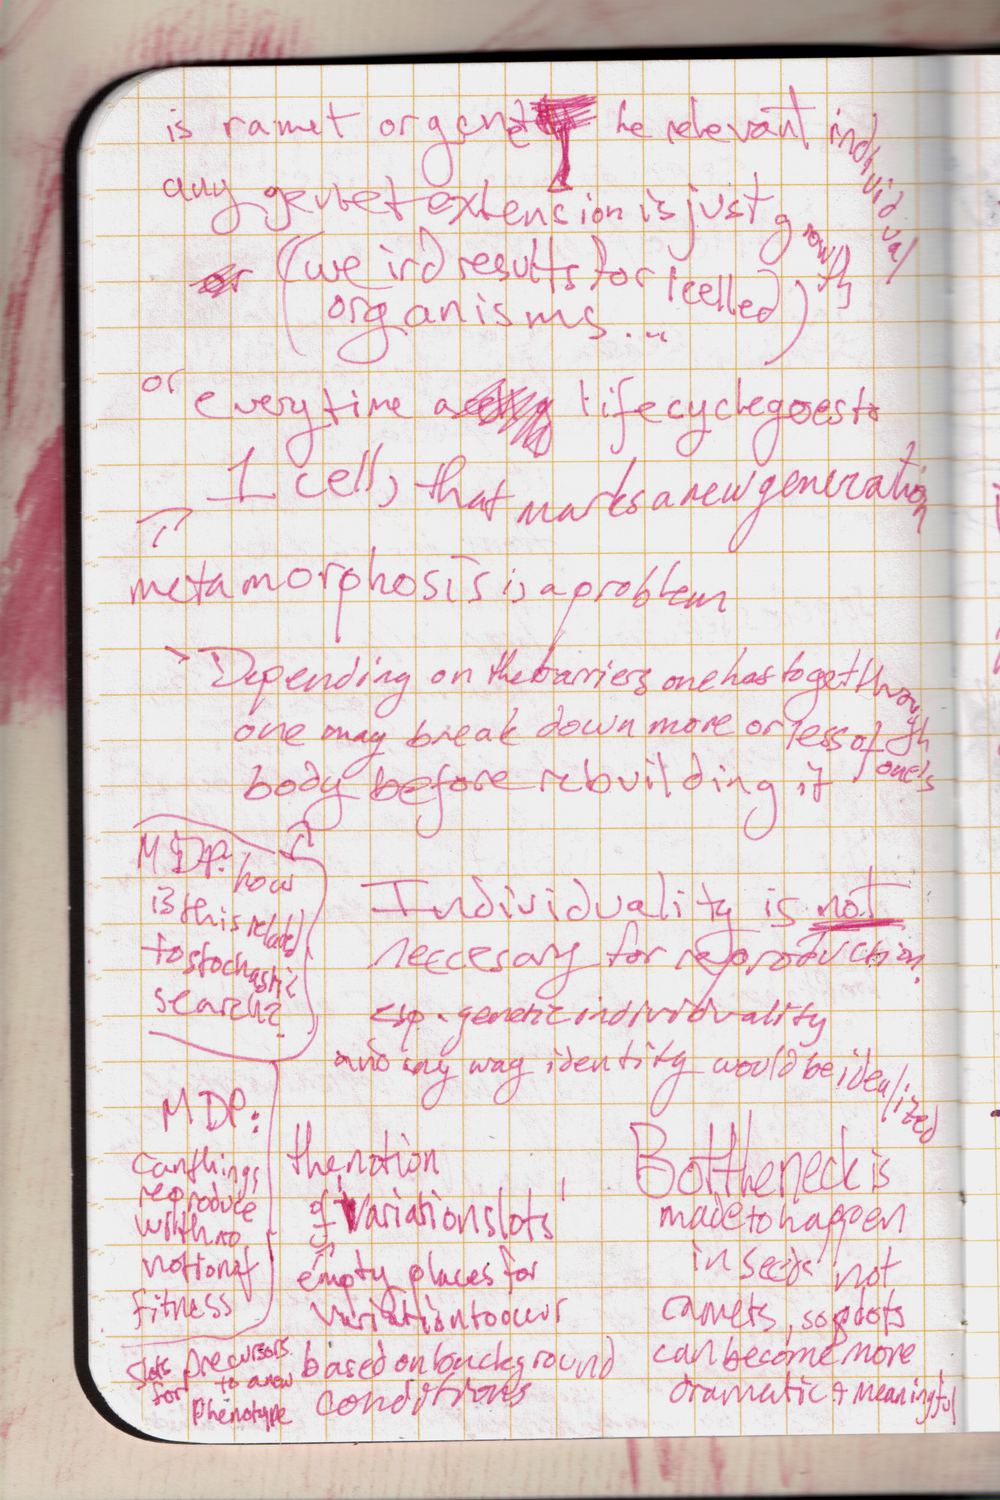 is ramet or genet the relevant individual
any genet extension is just growth
or (weird results for 1 celled
organisms...)
or everytime a lifecycle goes to
1 cell, that marks a new generation
metamorphosis is a problem
> Depending on the barriers one has to get through
one may break down more or less of one's
body before rebuilding it
MDP: how
is this related
to stochastic
search?
Individuality is not
neccesary for reproduction.
esp. genetic individuality
and any way identity would be idealized
MDP:
can things
reproduce
with no
notion of
fitness
the notion
of 'variation slots'
empty places for
variation to occur
based on background
conditions
slots precursors
for to a new
phenotype
Bottleneck is
made to happen
in seeds not
ramets, so
can become more
dramatic + meaningful